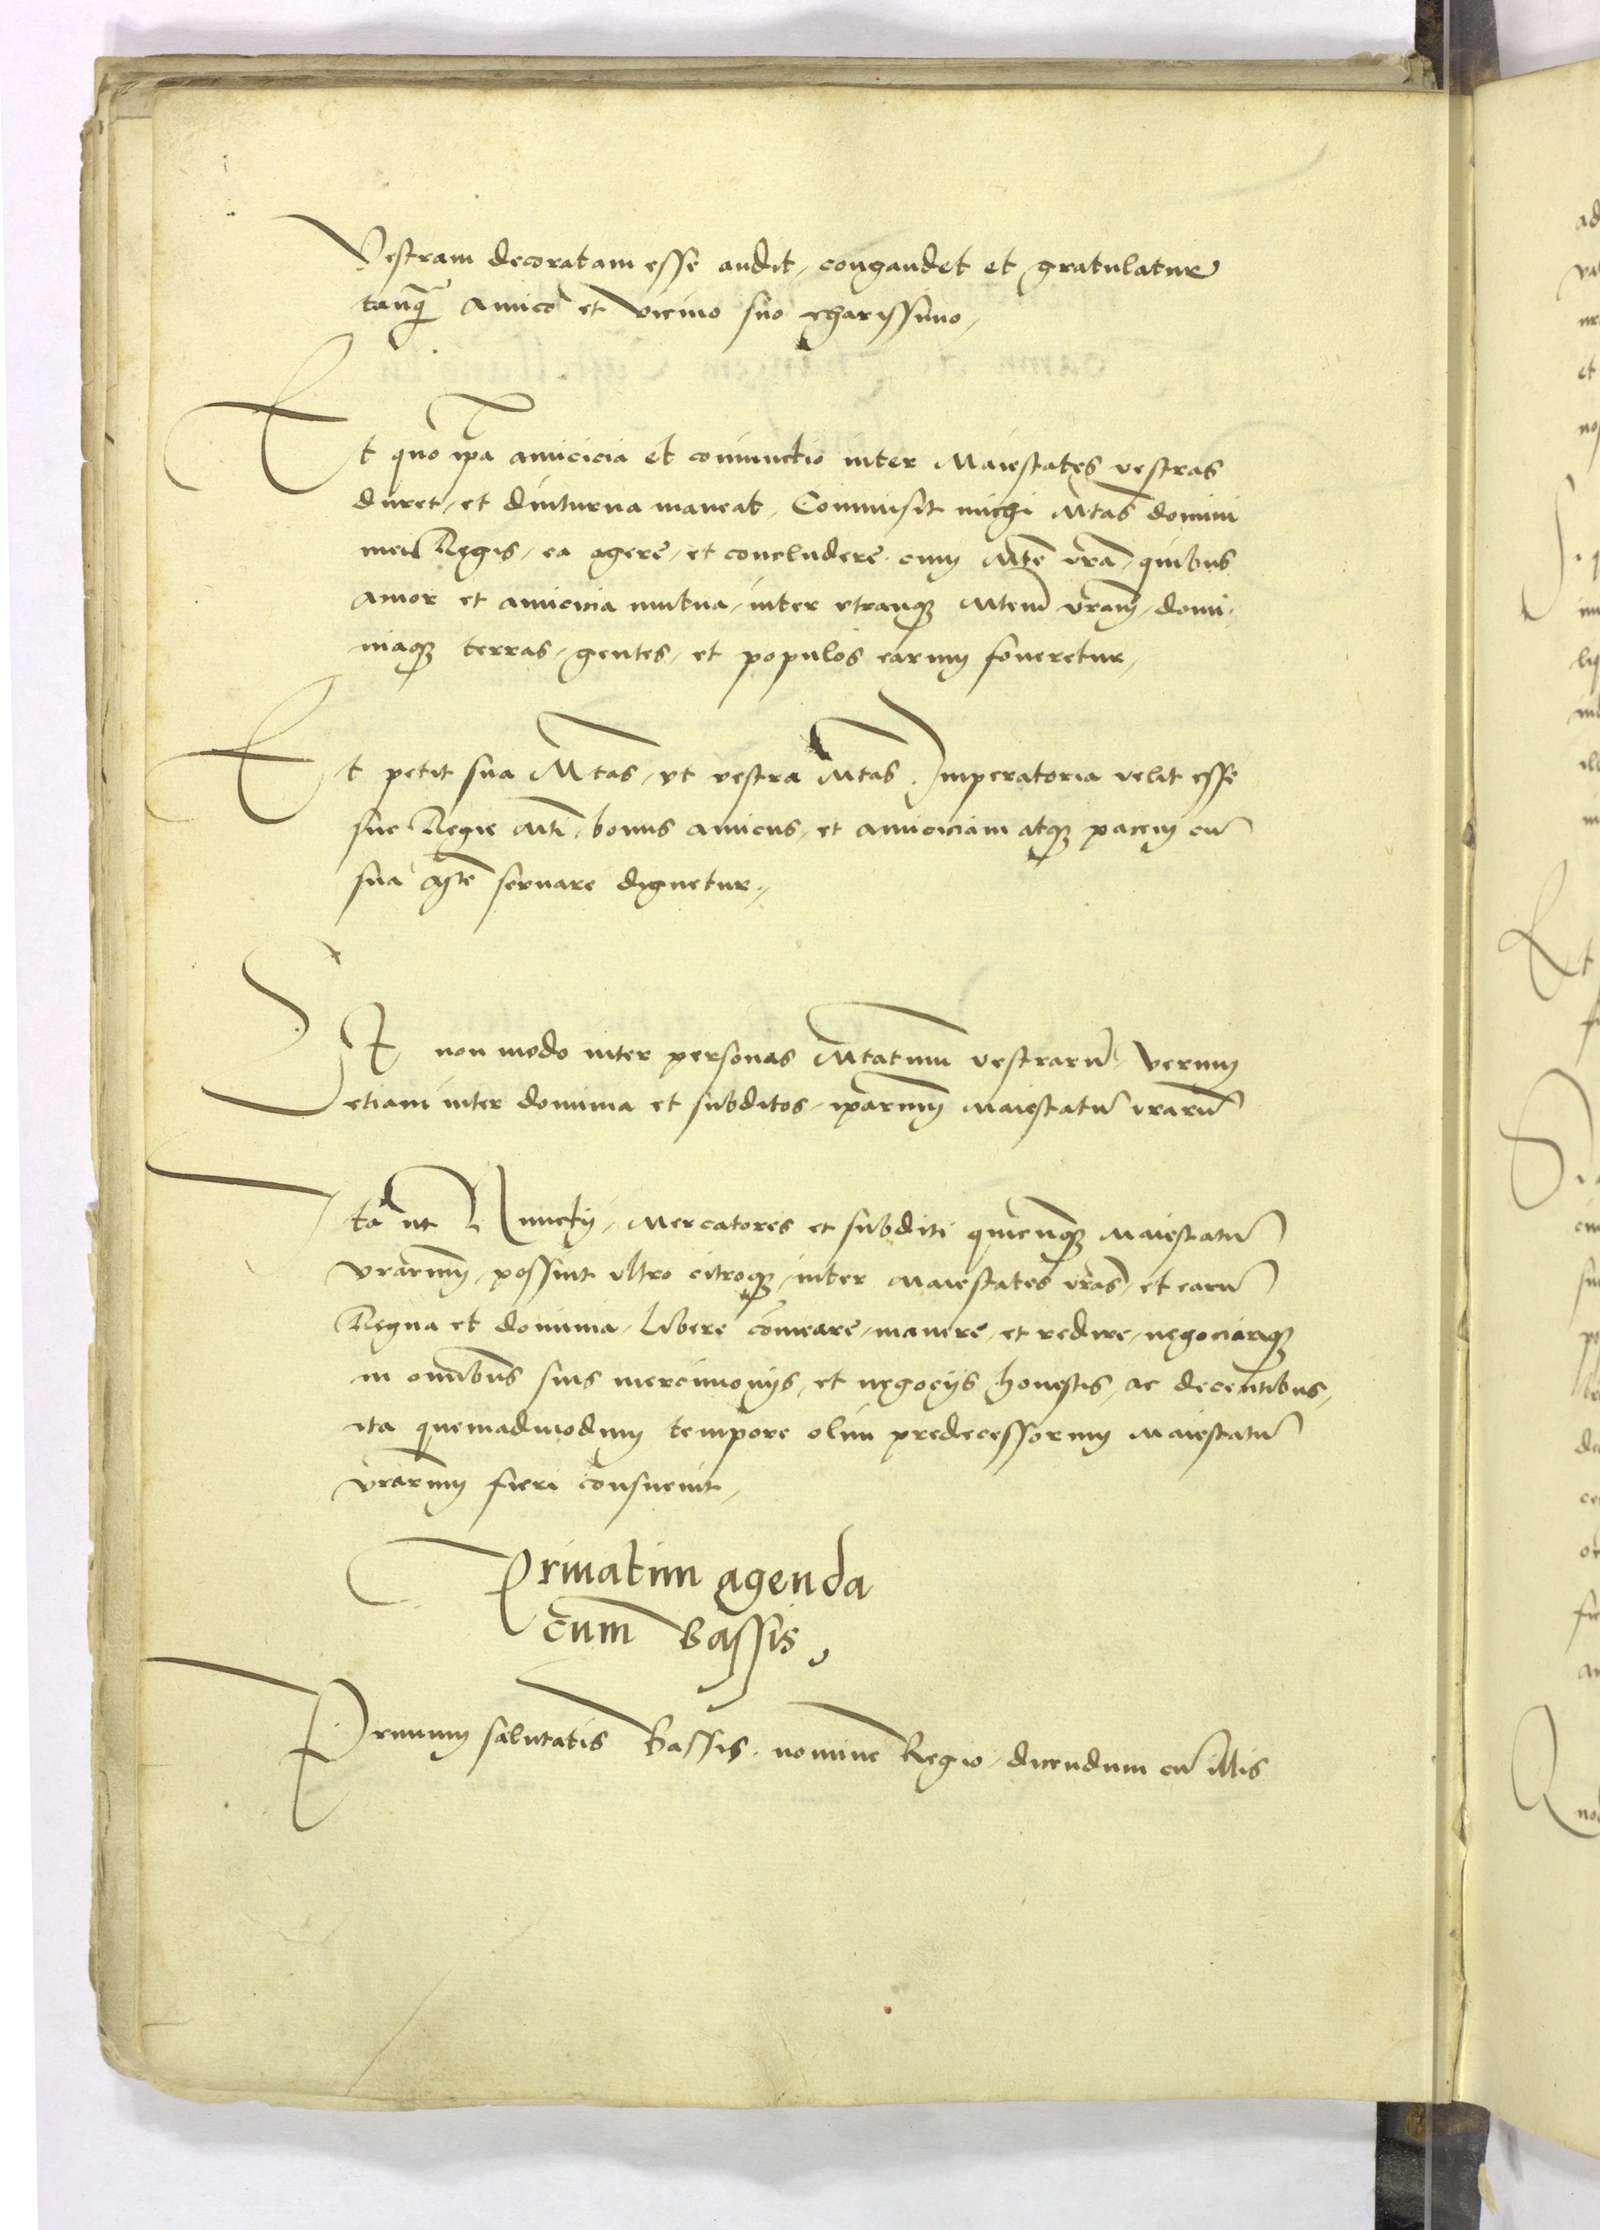 Vestram decoratam esse audit, congaudet et gratulatur
tanq̃ Amico et vicino suo charissimo,
Et quo ip̃a amicicia et coniunctio inter Maiestates vestras
duret, et diuturna maneat, Commisit michi Mtas domini
mei Regis, ea agere, et concludere cum Mte vrã, quibus
amor et amicicia mutua, inter vtranqꝫ Mtem vram̃, domi-
niaqꝫ terras, gentes, et populos earum foueretur,
Et petit sua Mtas, vt vestra Mtas Imperatoria velit esse
sue Regie Mti, bonus amicus, et amiciciam atqꝫ pacem cu᷈
sua Mte seruare dignetur,
Et non modo inter personas Mtatum vestraru᷈, verum
etiam inter dominia et subditos, ip̃arum Maiestatu᷈ vraru᷈
Ita ut Nunctij, Mercatores et subditi quicunqꝫ Maiestatu᷈
vrarum, possint vltro citroqꝫ, inter Maiestates vras̃, et earu᷈
Regna et dominia, libere com̃eare, manere, et redire, negociariqꝫ
in omnibus suis mercimonijs, et negocijs honestis, ac decentibus,
ita quemadmodum tempore olim predecessorum Maiestatu᷈
vrarum fieri consueuit,
Priuatim agenda
cum Bassis,
Primum salutatis Bassis, nomine Regio, dicendum cu᷈ illis